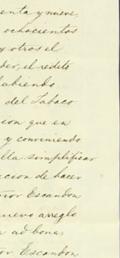 enta y nueve,
ochocientos
y otros el
der, el redito
habiendo
del Tabaco
cion que en
y conviniendo
lla simplificar
cion de hacer
eñor Escandon
nuevo arreglo
ad bona.
or Escandon